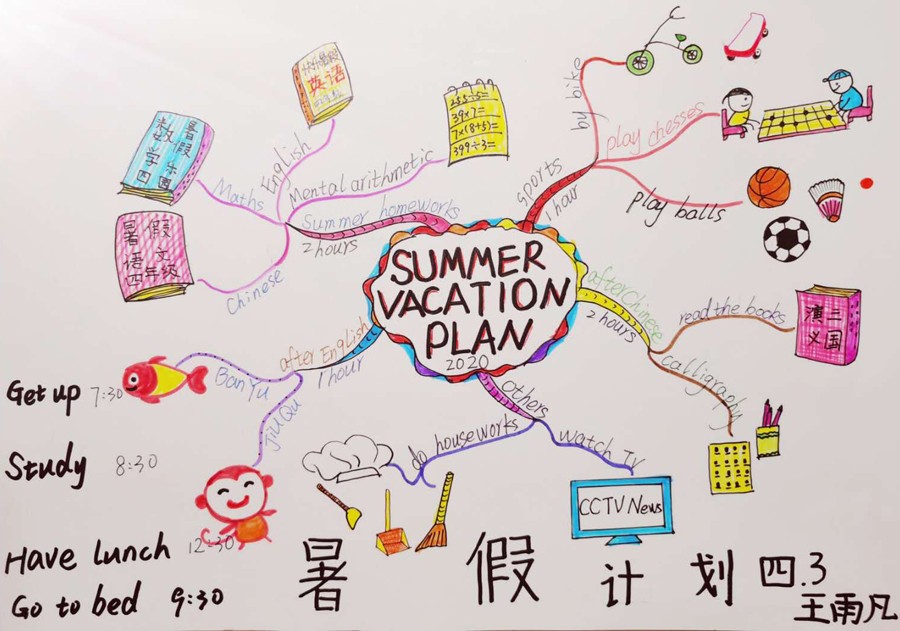 SUMMER
VACATION
PLAN
2020
sports
1 hour
by bike
play chesses
play balls
after Chinese
2 hours
read the books
三国
演义
calligraphy
others
do houseworks
watch TV
CCTV News
after English
1 hour
Ban Yu
JiuQu
Summer homeworks
2 hours
Mental arithmetic
255÷5=
39×7=
7×(8+5)=
399÷3=
English
英语
Maths
暑假乐园
数学四
Chinese
暑假
语文
四年级
Get up 7:30
Study 8:30
Have lunch 12:30
Go to bed 9:30
暑假计划
四.3
王雨凡